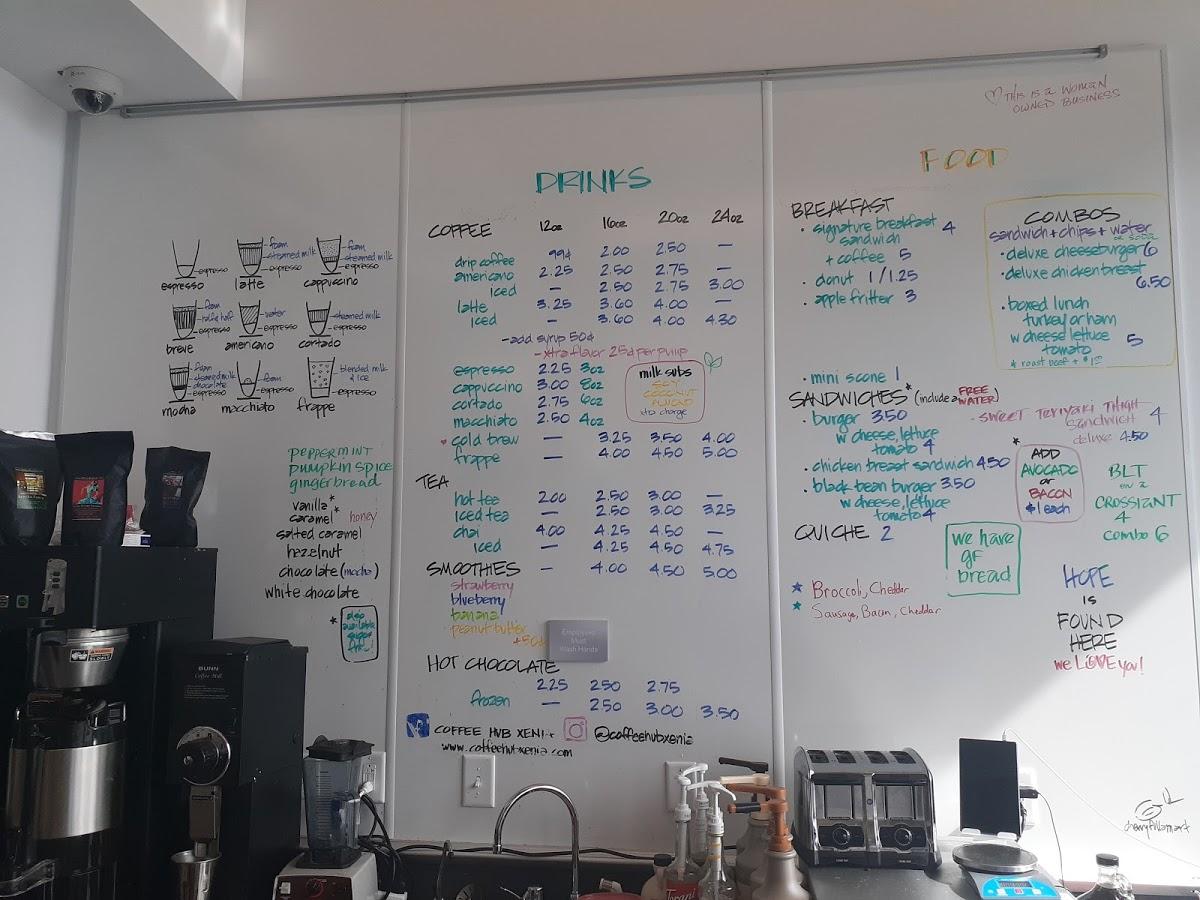 ♡ THIS IS A WOMAN
OWNED BUSINESS
espresso
espresso
foam
steamed milk
espresso
latte
foam
steamed milk
espresso
cappuccino
foam
half & half
espresso
breve
water
espresso
americano
steamed milk
espresso
cortado
foam
steamed milk
chocolate
espresso
mocha
foam
espresso
macchiato
blended milk
& ice
espresso
frappe
PEPPERMINT
PUMPKIN SPICE
gingerbread
vanilla*
caramel* honey
salted caramel
hazelnut
chocolate (mocha)
white chocolate
* also
available
sugar
free!
BUNN
Coffee Mill
DRINKS
COFFEE 12oz 16oz 20oz 24oz
drip coffee 99¢ 2.00 2.50 —
americano 2.25 2.50 2.75 —
iced — 2.50 2.75 3.00
latte 3.25 3.60 4.00 —
iced — 3.60 4.00 4.30
- add syrup 50¢
- xtra flavor 25¢ per pump
espresso 2.25 3oz
cappuccino 3.00 8oz
cortado 2.75 6oz
macchiato 2.50 4oz
milk subs
SOY
COCONUT
ALMOND
no charge
♥ cold brew — 3.25 3.50 4.00
frappe — 4.00 4.50 5.00
TEA
hot tea 2.00 2.50 3.00 —
iced tea — 2.50 3.00 3.25
chai 4.00 4.25 4.50 —
iced — 4.25 4.50 4.75
SMOOTHIES — 4.00 4.50 5.00
strawberry
blueberry
banana
peanut butter +50¢
Employees
Must
Wash Hands
HOT CHOCOLATE
2.25 2.50 2.75
frozen — 2.50 3.00 3.50
COFFEE HUB XENIA @coffeehubxenia
www.coffeehubxenia.com
FOOD
BREAKFAST
• signature breakfast 4
sandwich
+ coffee 5
• donut 1/1.25
• apple fritter 3
• mini scone 1
COMBOS
sandwich + chips + water
or soda
• deluxe cheeseburger 6
• deluxe chicken breast
6.50
• boxed lunch
turkey or ham
w cheese, lettuce
tomato 5
SANDWICHES* (include a FREE
WATER)
• burger 3.50
w cheese, lettuce
tomato 4
• chicken breast sandwich 4.50
• black bean burger 3.50
w cheese, lettuce
tomato 4
- SWEET TERIYAKI THIGH
SANDWICH 4
deluxe 4.50
* ADD
AVOCADO
or
BACON
$1 each
BLT
on a
CROSSIANT
4
combo 6
QUICHE 2
we have
gf
bread
★ Broccoli, Cheddar
★ Sausage, Bacon, Cheddar
HOPE
IS
FOUND
HERE
we LOVE you!
Torani